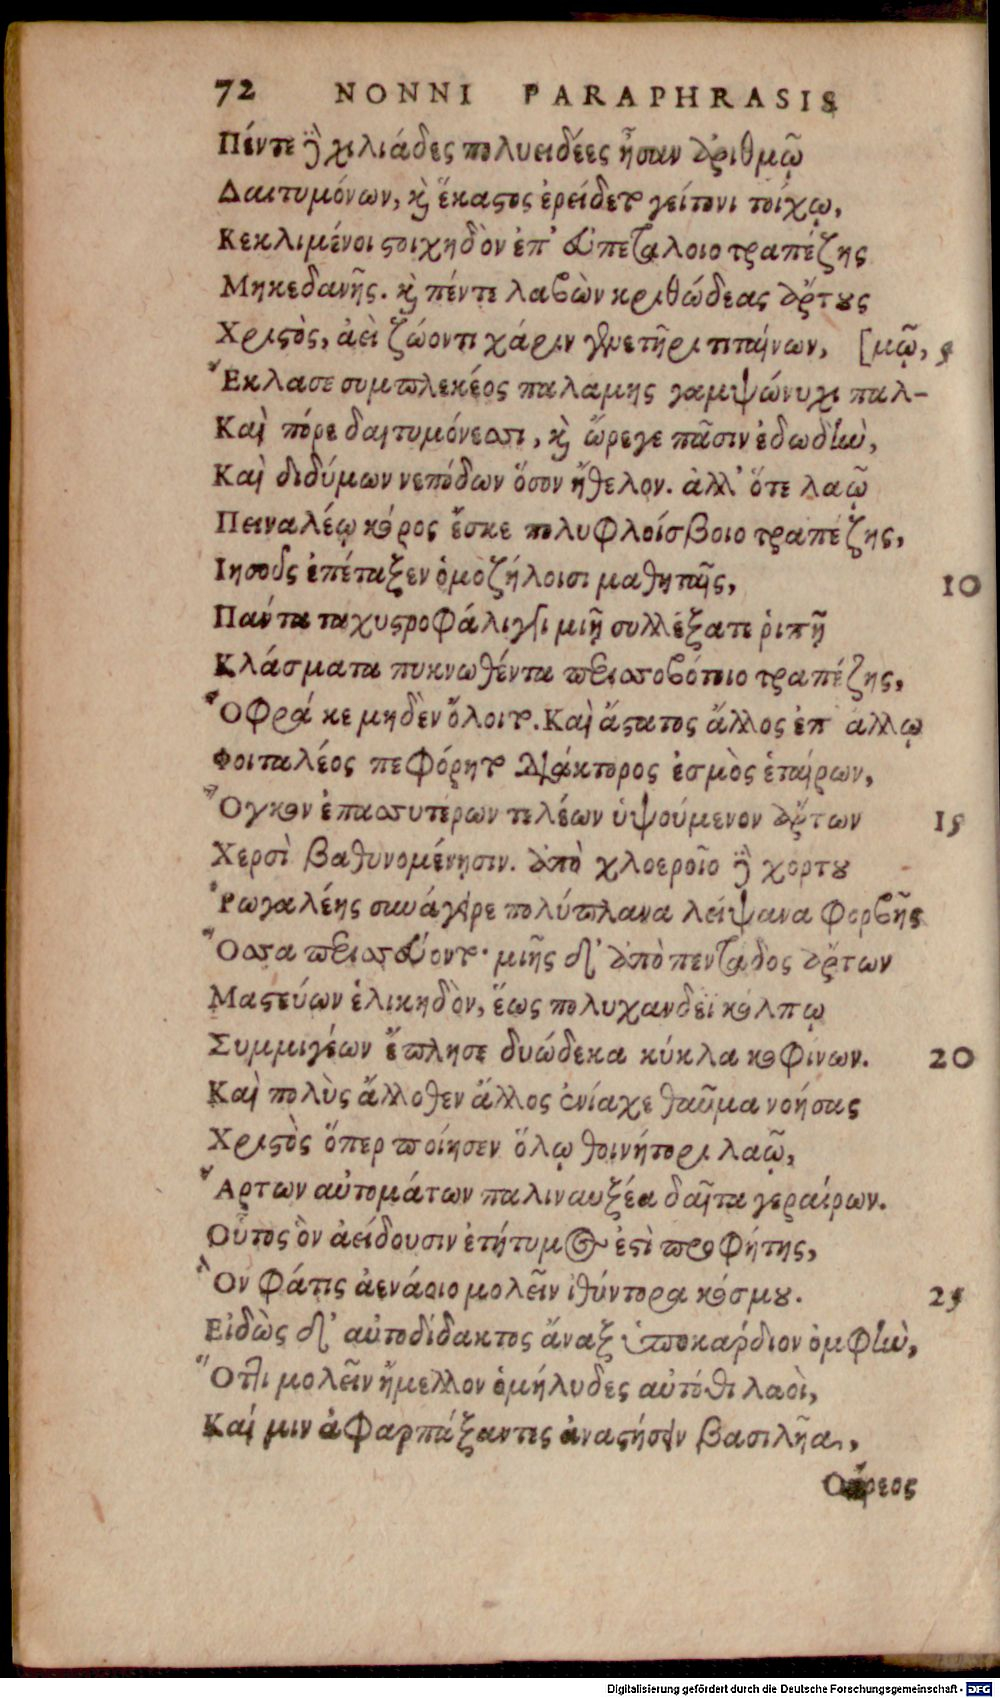 72 NONNI PARAPHRASIS
Πέντε δὲ χιλιάδες πολυειδέες ἦσαν ἀριθμῷ
Δαιτυμόνων, καὶ ἕκαστος ἐρείδετο γείτονι τοίχῳ,
Κεκλιμένοι στοιχηδὸν ἐπ' εὐπετάλοιο τραπέζης
Μηκεδανῆς. καὶ πέντε λαβὼν κριθώδεας ἄρτους
Χριστὸς, ἀεὶ ζώοντι χάριν γενετῆρι τιταίνων, [μῷ, 5
Ἔκλασε συμπλεκέος παλάμης γαμψώνυχι παλ-
Καὶ πόρε δαιτυμόνεσσι, καὶ ὤρεγε πᾶσιν ἐδωδὴν,
Καὶ διδύμων νεπόδων ὅσον ἤθελον. ἀλλ' ὅτε λαῷ
Πειναλέῳ κόρος ἔσκε πολυφλοίσβοιο τραπέζης,
Ἰησοῦς ἐπέταξεν ὁμοζήλοισι μαθηταῖς, 10
Πάντα ταχυστροφάλιγγι μιῇ συλλέξατε ῥιπῇ
Κλάσματα πυκνωθέντα περισσοβότοιο τραπέζης,
Ὄφρά κε μηδὲν ὄλοιτο. Καὶ ἄστατος ἄλλος ἐπ' ἄλλῳ
Φοιταλέος πεφόρητο διάκτορος ἑσμὸς ἑταίρων,
Ὄγκον ἐπασσυτέρων τελέων ὑψούμενον ἄρτων 15
Χερσὶ βαθυνομένῃσιν. ἀπὸ χλοεροῖο δὲ χόρτου
Ῥωγαλέης συνάγειρε πολύπλανα λείψανα φορβῆς
Ὅσσα περισσεύοντο· μιῆς δ' ἀπὸ πεντάδος ἄρτων
Μαστεύων ἑλικηδὸν, ἕως πολυχανδέϊ κόλπῳ
Συμμιγέων ἔπλησε δυώδεκα κύκλα κοφίνων. 20
Καὶ πολὺς ἄλλοθεν ἄλλος ἐνίαχε θαῦμα νοήσας
Χριστὸς ὅπερ ποίησεν ὅλῳ θοινήτορι λαῷ,
Ἄρτων αὐτομάτων παλιναυξέα δαῖτα γεραίρων.
Οὗτος ὃν ἀείδουσιν ἐτήτυμος ἐστὶ προφήτης,
Ὃν φάτις ἀενάοιο μολεῖν ἰθύντορα κόσμου. 25
Εἰδὼς δ' αὐτοδίδακτος ἄναξ ὑποκάρδιον ὀμφὴν,
Ὅττι μολεῖν ἤμελλον ὁμήλυδες αὐτόθι λαοὶ,
Καί μιν ἀφαρπάξαντες ἀναστήσειν βασιλῆα,
Οὔρεος
Digitalisierung gefördert durch die Deutsche Forschungsgemeinschaft - DFG